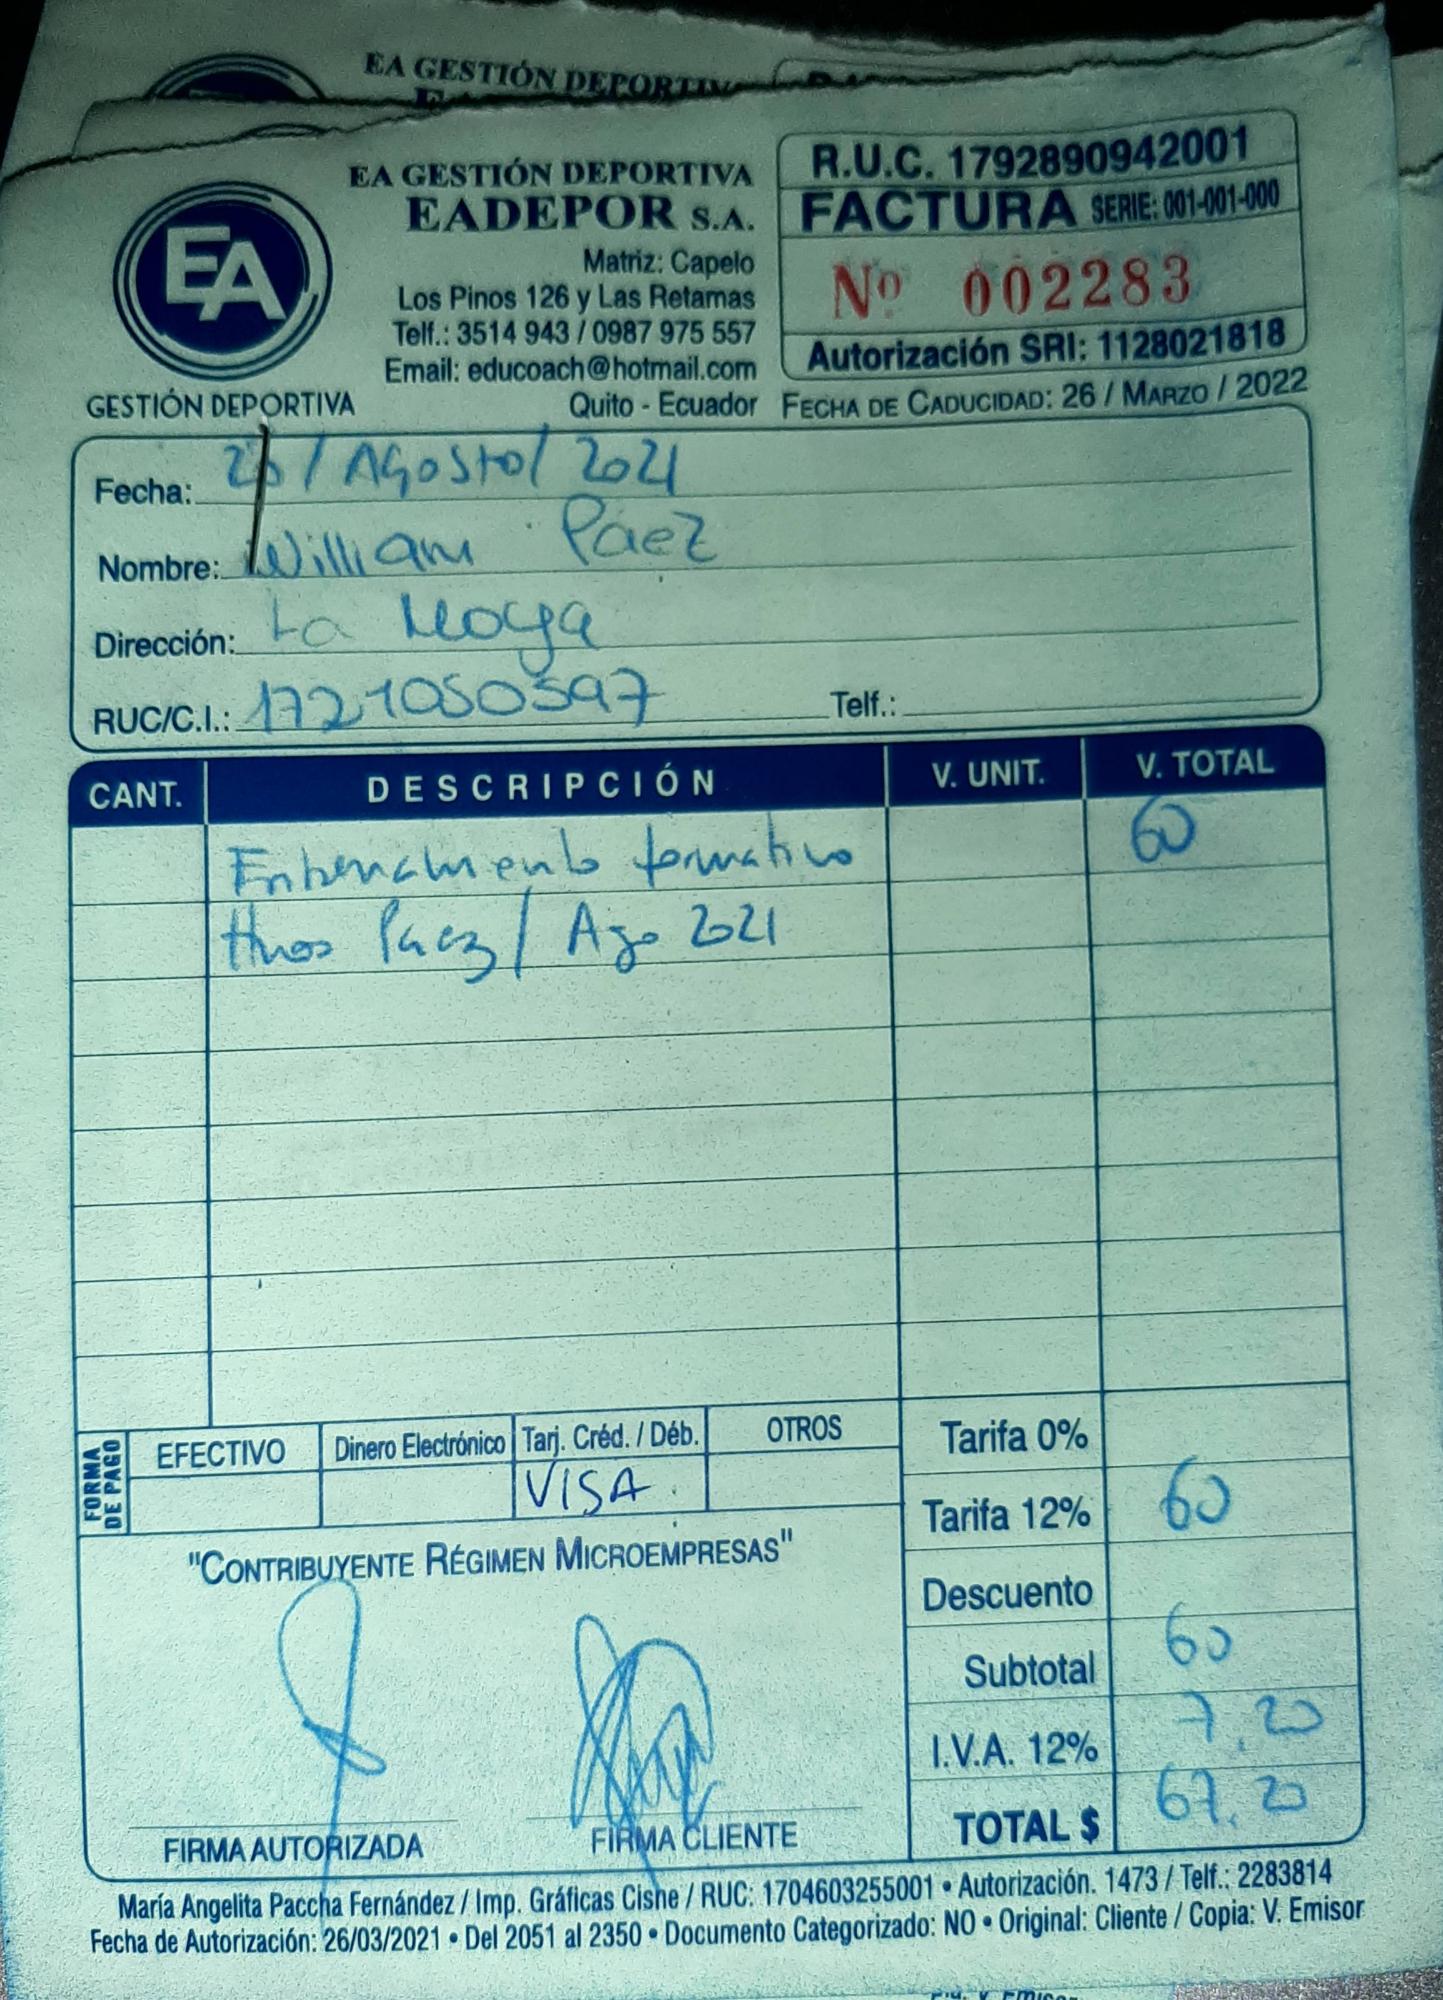 EA GESTIÓN DEPORTIVA
EA
EA GESTIÓN DEPORTIVA
EADEPOR S.A.
Matriz: Capelo
Los Pinos 126 y Las Retamas
Telf.: 3514 943 / 0987 975 557
Email: educoach@hotmail.com
GESTIÓN DEPORTIVA
Quito - Ecuador
R.U.C. 1792890942001
FACTURA SERIE: 001-001-000
Nº 002283
Autorización SRI: 1128021818
FECHA DE CADUCIDAD: 26 / MARZO / 2022
Fecha: / Agosto / 2021
Nombre: William Páez
Dirección: La Moya
RUC/C.I.: 1721050597 Telf.:
CANT. DESCRIPCIÓN V. UNIT. V. TOTAL
Entrenamiento formativo 60
Hnos Paez / Ago 2021
FORMA DE PAGO
EFECTIVO Dinero Electrónico Tarj. Créd. / Déb. OTROS
VISA
Tarifa 0%
Tarifa 12% 60
Descuento
Subtotal 60
I.V.A. 12% 7,20
TOTAL $ 67,20
"CONTRIBUYENTE RÉGIMEN MICROEMPRESAS"
FIRMA AUTORIZADA FIRMA CLIENTE
María Angelita Paccha Fernández / Imp. Gráficas Cisne / RUC: 1704603255001 • Autorización. 1473 / Telf.: 2283814
Fecha de Autorización: 26/03/2021 • Del 2051 al 2350 • Documento Categorizado: NO • Original: Cliente / Copia: V. Emisor